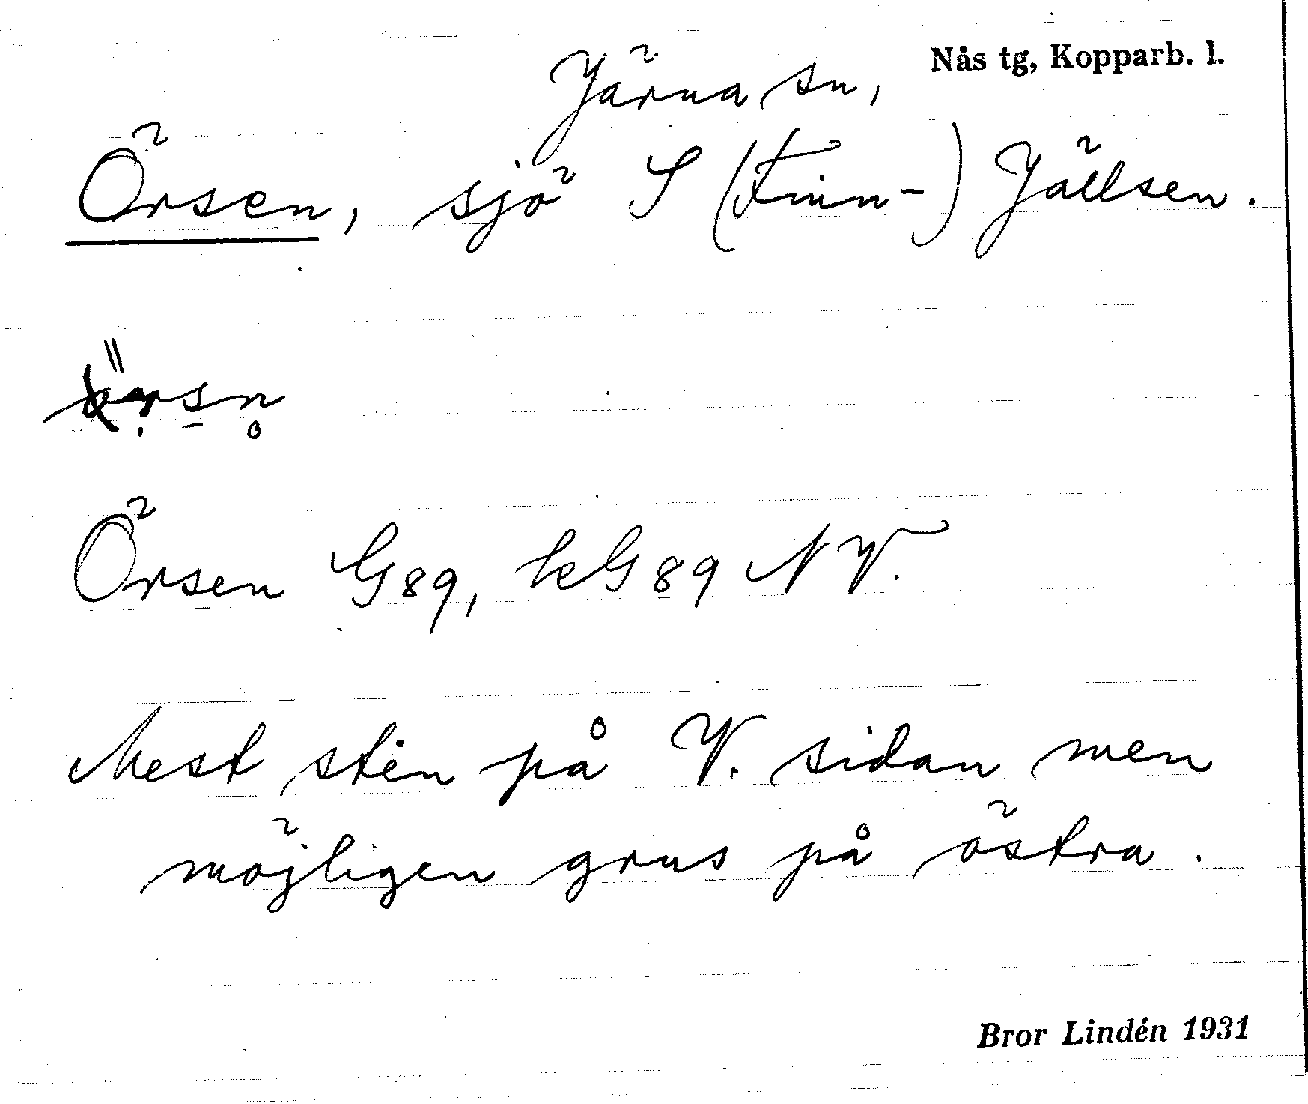 Nås tg, Kopparb. l.
Järna sn,
Örsen, sjö S (Finn-) Jällsen.
Örsen G89, kG89 NV.
Mest sten på V. sidan men
möjligen grus på östra.
Bror Lindén 1931